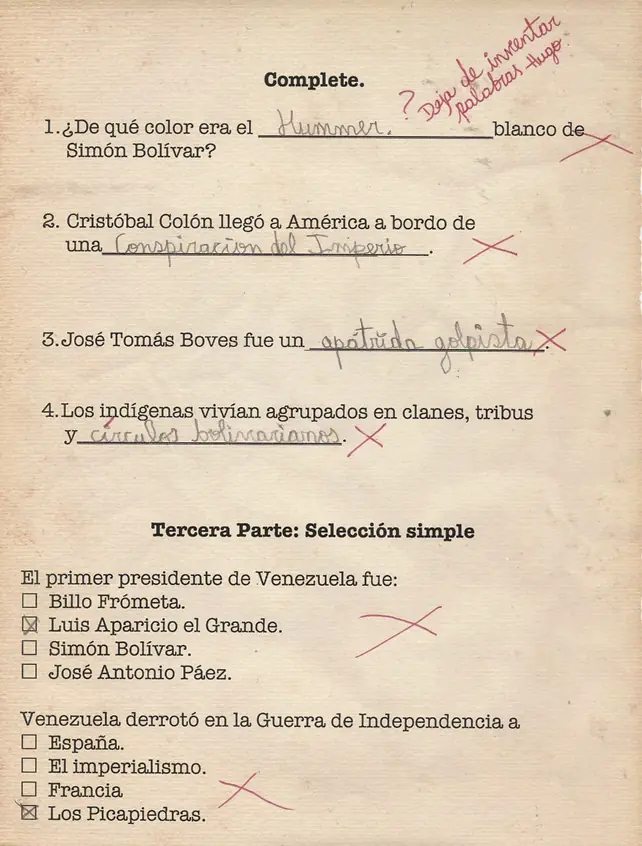 ? Deja de inventar
palabras Hugo.
Complete.
1. ¿De qué color era el Hummer. blanco de
Simón Bolívar?
2. Cristóbal Colón llegó a América a bordo de
una Conspiracion del Imperio.
3. José Tomás Boves fue un apátrida golpista.
4. Los indígenas vivían agrupados en clanes, tribus
y círculos bolivarianos.
Tercera Parte: Selección simple
El primer presidente de Venezuela fue:
☐ Billo Frómeta.
☒ Luis Aparicio el Grande.
☐ Simón Bolívar.
☐ José Antonio Páez.
Venezuela derrotó en la Guerra de Independencia a
☐ España.
☐ El imperialismo.
☐ Francia
☒ Los Picapiedras.